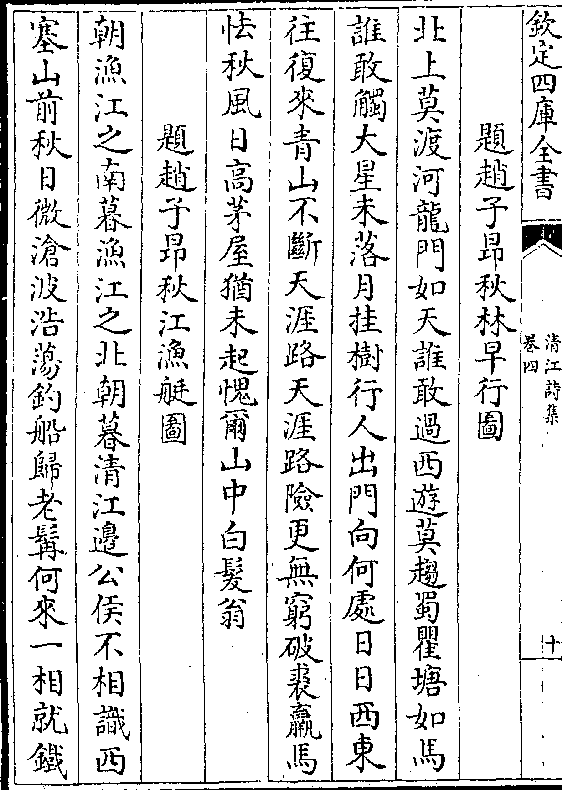 欽定四庫全書
清江詩集
卷四
十
題趙子昻秋林早行圖
北上莫渡河龍門如天誰敢過西遊莫趨蜀瞿塘如馬
誰敢觸大星未落月挂樹行人出門向何處日日西東
往復來青山不斷天涯路天涯路險更無窮破裘羸馬
怯秋風日高茅屋猶未起愧爾山中白髮翁
題趙子昻秋江漁艇圖
朝漁江之南暮漁江之北朝暮清江邊公侯不相識西
塞山前秋日微滄波浩蕩釣船歸老髯何來一相就鐵